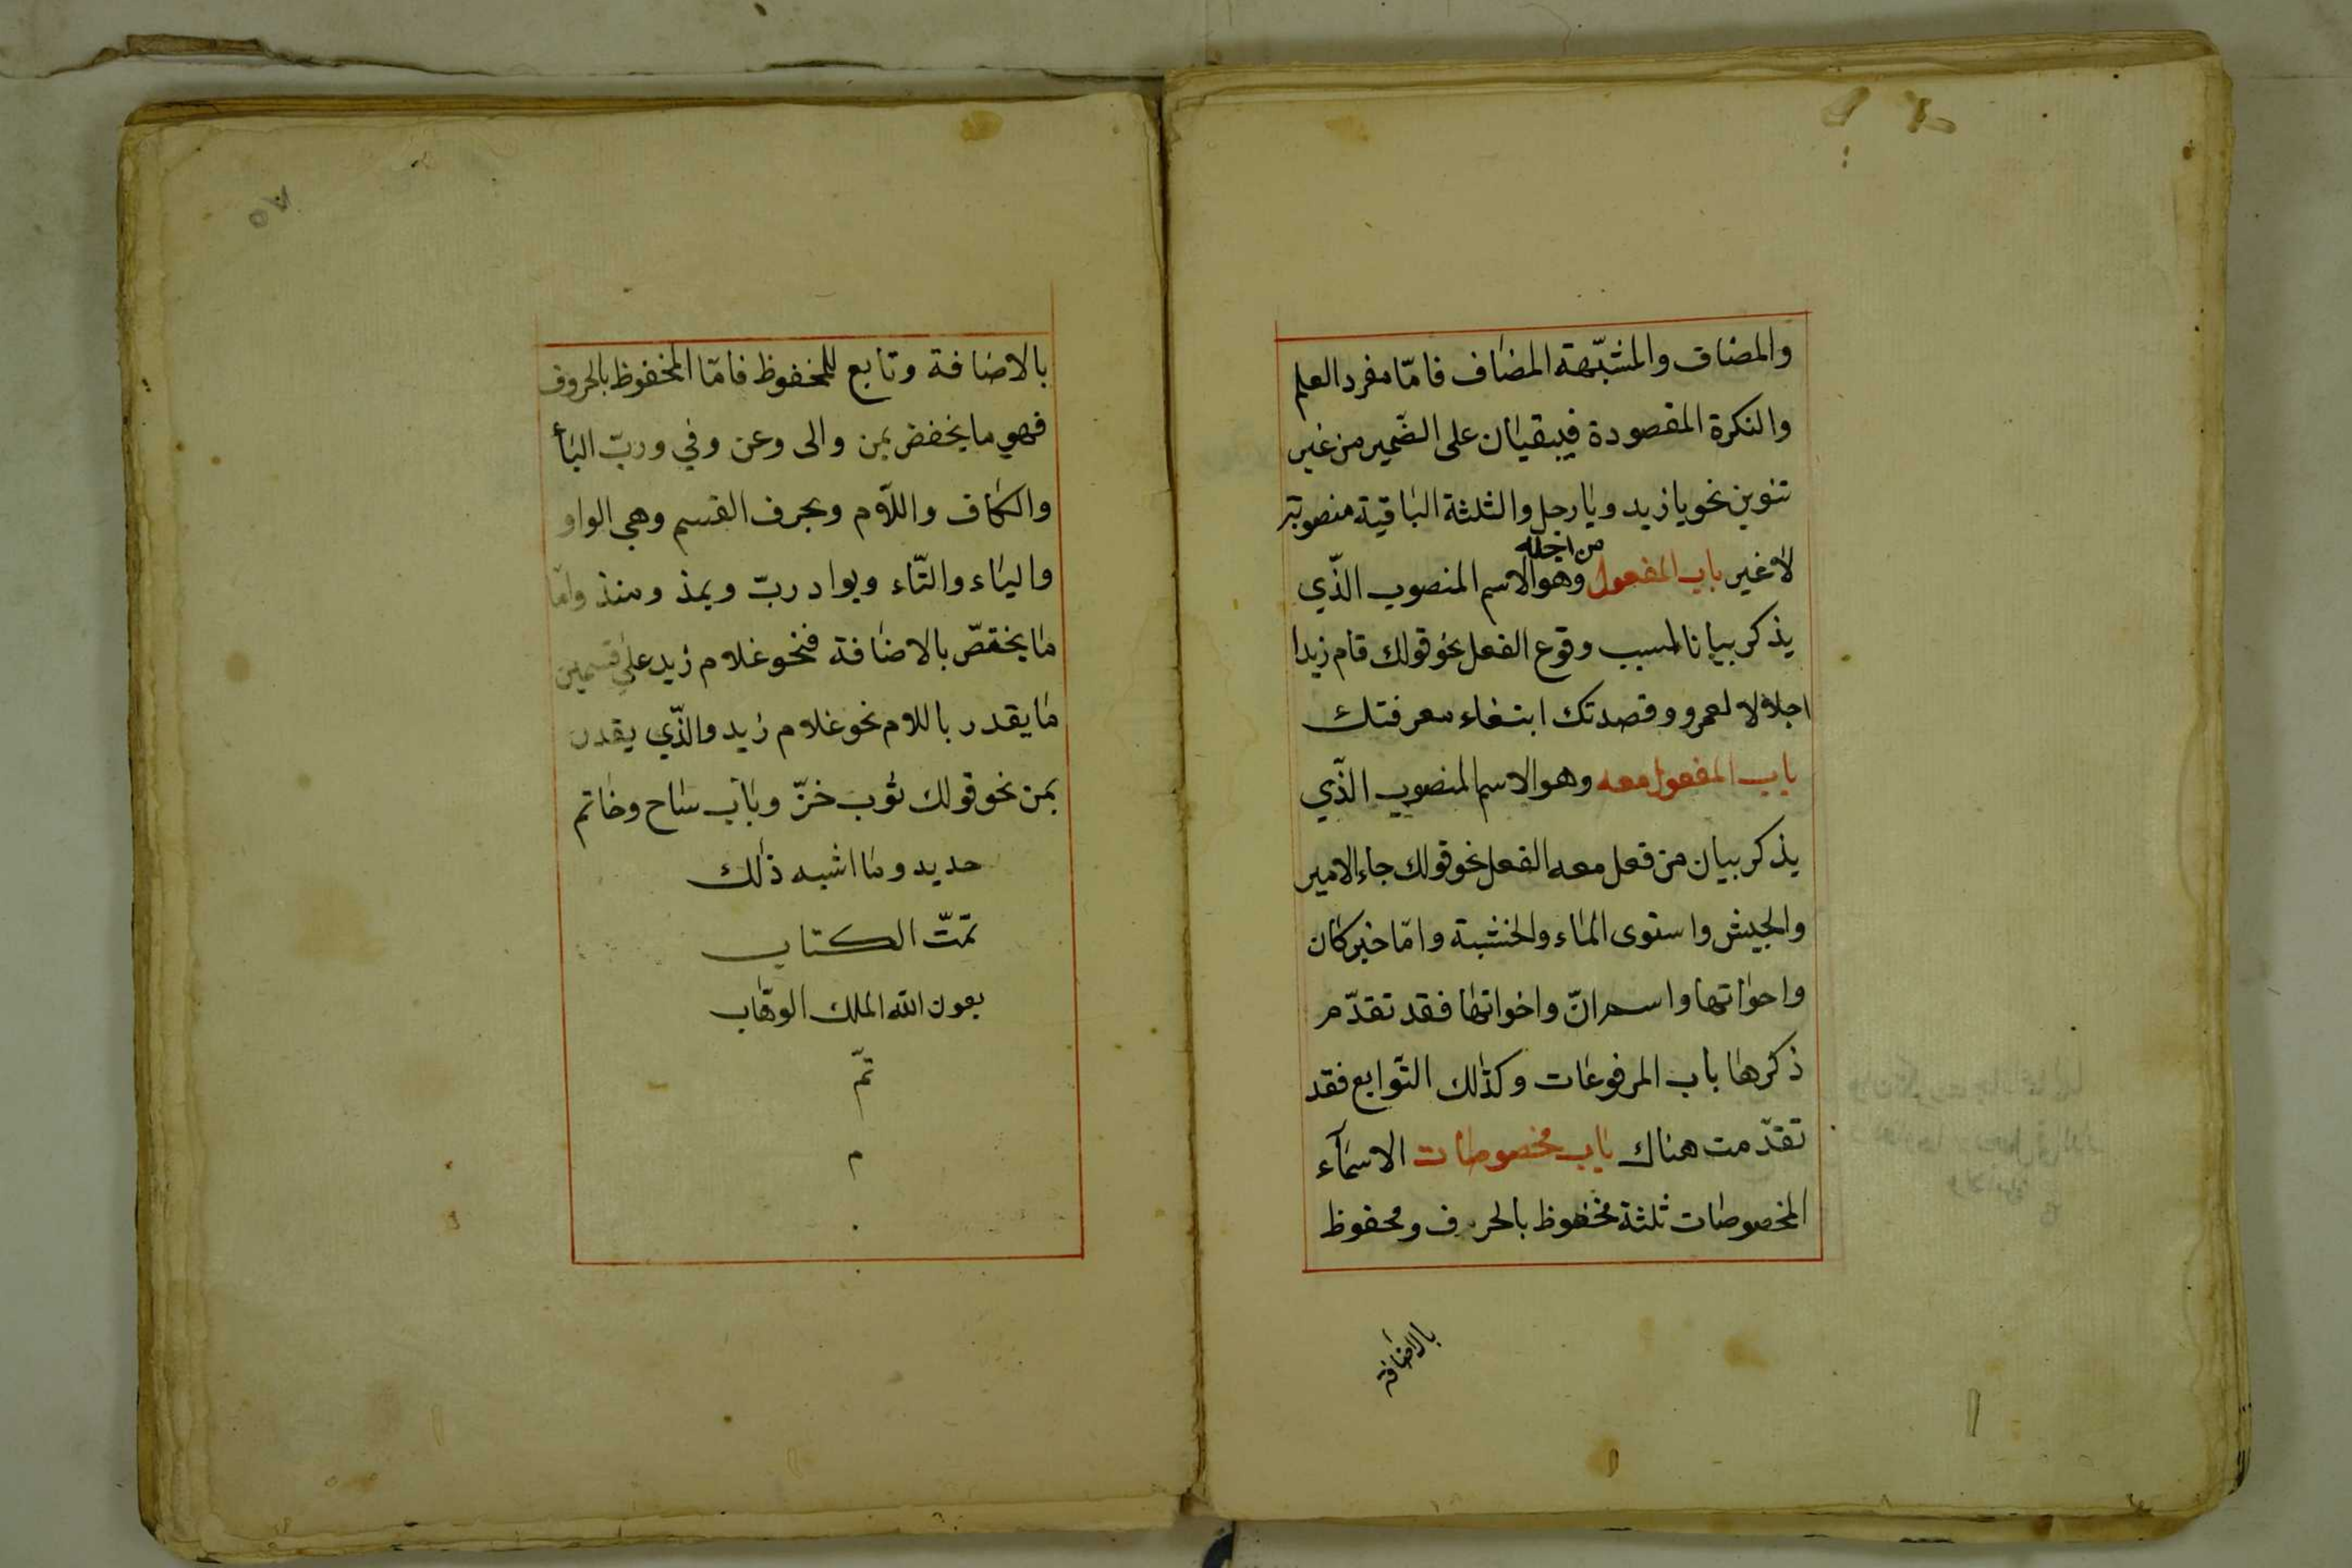 والمضاف والمشبّهة المضاف فامّا مفرد العلم
والنكرة المقصودة فيبقيان على الضمير من غير
تنوين نحو يا زيد ويا رجل والثلثة الباقية منصوبة
لا غير باب المفعول من اجله وهو الاسم المنصوب الذّي
يذكر بيانا لسبب وقوع الفعل نحو قولك قام زيدا
اجلالا لعمرو وقصدتك ابتغاء معرفتك
باب المفعول معه وهو الاسم المنصوب الذّي
يذكر بيان من فعل معه الفعل نحو قولك جاء الامير
والجيش واستوى الماء والخشبة وامّا خبر كان
واخواتها واسم انّ واخواتها فقد تقدّم
ذكرها باب المرفوعات وكذلك التّوابع فقد
تقدّمت هناك باب مخصوصات الاسمآء
المخصوصات ثلثة مخفوظ بالحرف ومخفوظ
بالاضافة
٥٧
بالاضافة وتابع للمخفوظ فامّا المخفوظ بالحروف
فهي ما يخفض بمن والى وعن وفي وربّ البأ
والكاف واللّام وبحرف القسم وهي الواو
والياء والتّاء وبواد ربّ وبمذ ومنذ وامّا
ما يختصّ بالاضافة فنحو غلام زيد على قسمين
ما يقدر باللام نحو غلام زيد والذّي يقدر
بمن نحو قولك ثوب خزّ وباب ساح وخاتم
حديد وما اشبه ذلك
تمّت الكتاب
بعون الله الملك الوهّاب
تمّ
م